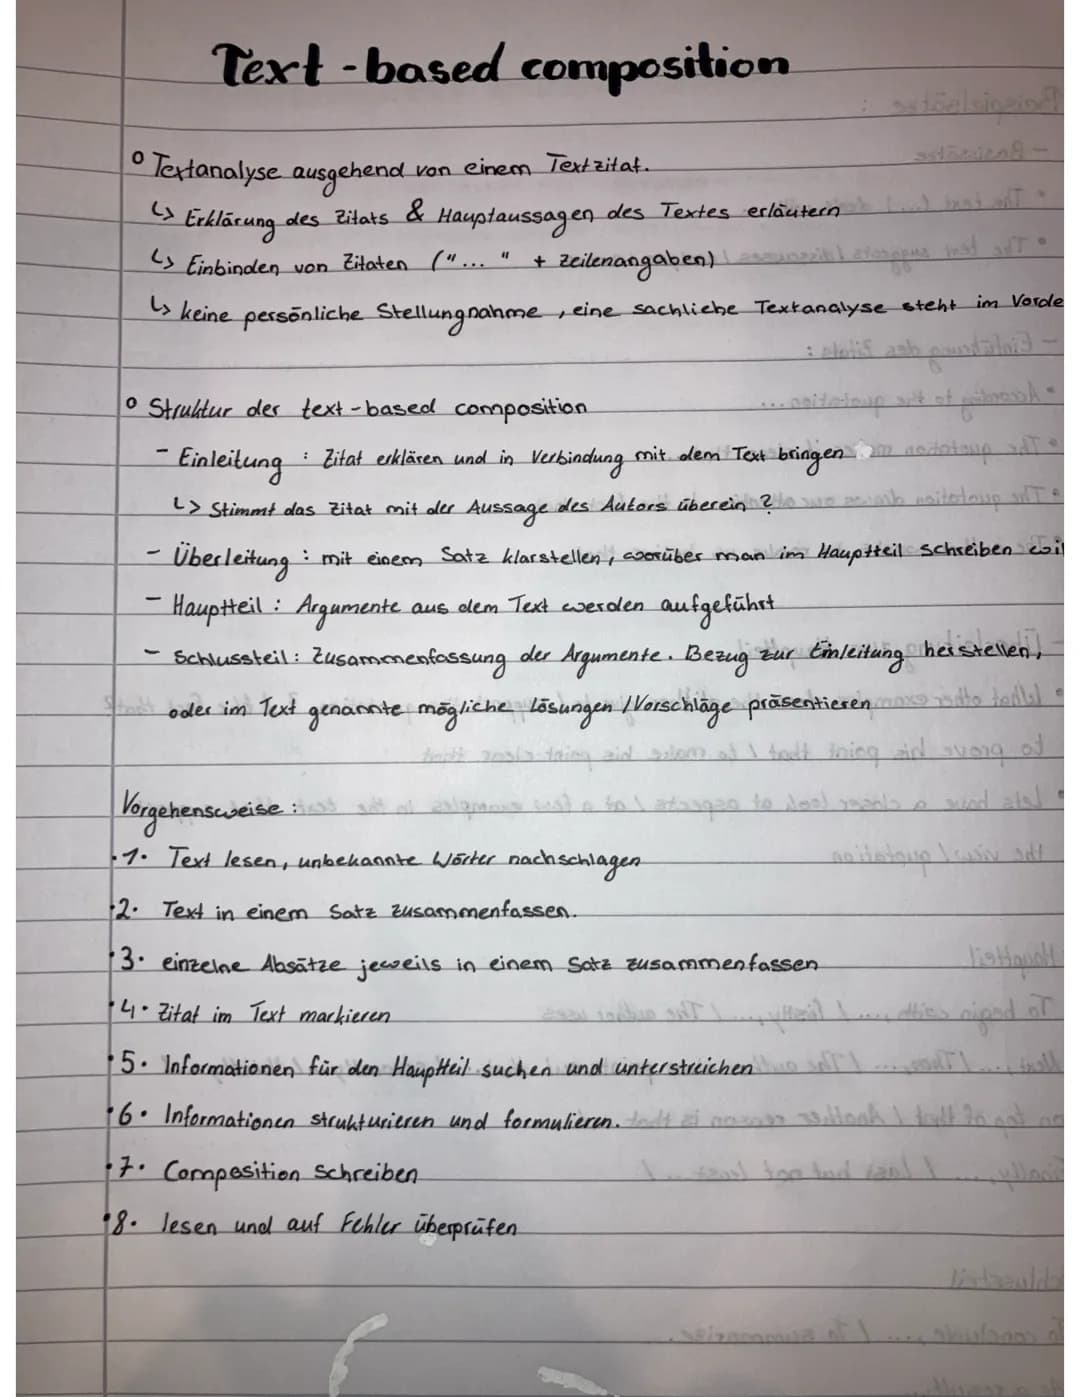 Text-based composition
° Textanalyse ausgehend von einem Textzitat.
↳ Erklärung des Zitats & Hauptaussagen des Textes erläutern
↳ Einbinden von Zitaten ("..." + Zeilenangaben)
↳ keine persönliche Stellungnahme, eine sachliche Textanalyse steht im Vorde
° Struktur der text-based composition
- Einleitung : Zitat erklären und in Verbindung mit dem Text bringen
↳ Stimmt das Zitat mit der Aussage des Autors überein ?
- Überleitung : mit einem Satz klarstellen, worüber man im Hauptteil schreiben wil
- Hauptteil : Argumente aus dem Text werden aufgeführt
- Schlussteil: Zusammenfassung der Argumente. Bezug zur Einleitung herstellen,
oder im Text genannte mögliche Lösungen /Vorschläge präsentieren
Vorgehensweise :
1. Text lesen, unbekannte Wörter nachschlagen
2. Text in einem Satz zusammenfassen.
3. einzelne Absätze jeweils in einem Satz zusammenfassen
4. Zitat im Text markieren
5. Informationen für den Hauptteil suchen und unterstreichen
6. Informationen strukturieren und formulieren.
7. Composition schreiben
8. lesen und auf Fehler überprüfen